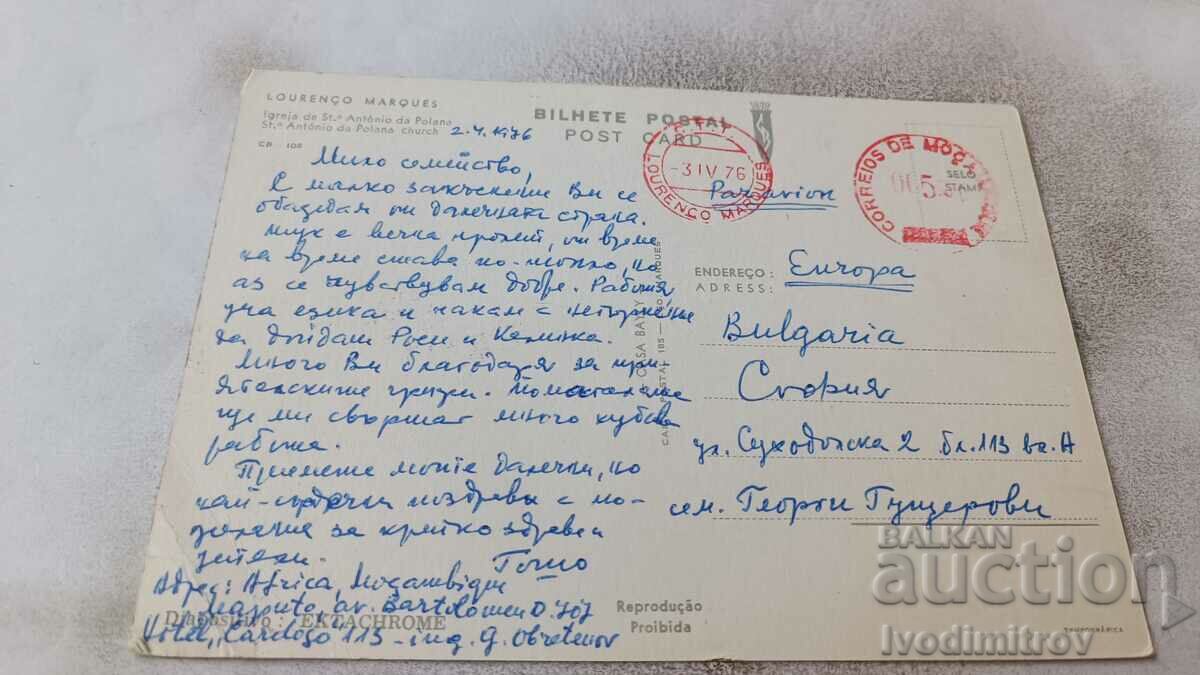 LOURENÇO MARQUES
Igreja de St.º António da Polana
St.º António da Polana church
CB 108
2.4.1976
BILHETE POSTAL
POST CARD
Мило семейство,
С малко закъснение Ви се
обаждам от далечната страна.
Тук е вечна пролет, от време
на време става по-топло, но
аз се чувствувам добре. Работя
уча езика и чакам с нетърпение
да дойдат Роси и Калинка.
Много Ви благодаря за при
ятелските грижи. Помагалата
ще ми свършат много хубава
работа.
Приемете моите далечни, но
най-сърдечни поздрави с по-
желание за крепко здраве и
успехи. Гошо
Адрес: Africa, Moçambique
Maputo, av. Bartolomeu D
Hotel, Cardoso 113 - ing. G. Obretenov
Diapositivo: EKTACHROME
LOURENÇO MARQUES
-3 IV 76
CORREIOS DE MOÇ
SELO
STAMP
Par avion
ENDEREÇO:
ADRESS:
Europa
Bulgaria
София
ул. Суходолска 2 бл. 113 вх. А
сем. Георги Гущерови
CASA BAYLY
CAIXA POSTAL 185
Reprodução
Proibida
BALKAN
auction
Ivodimitrov